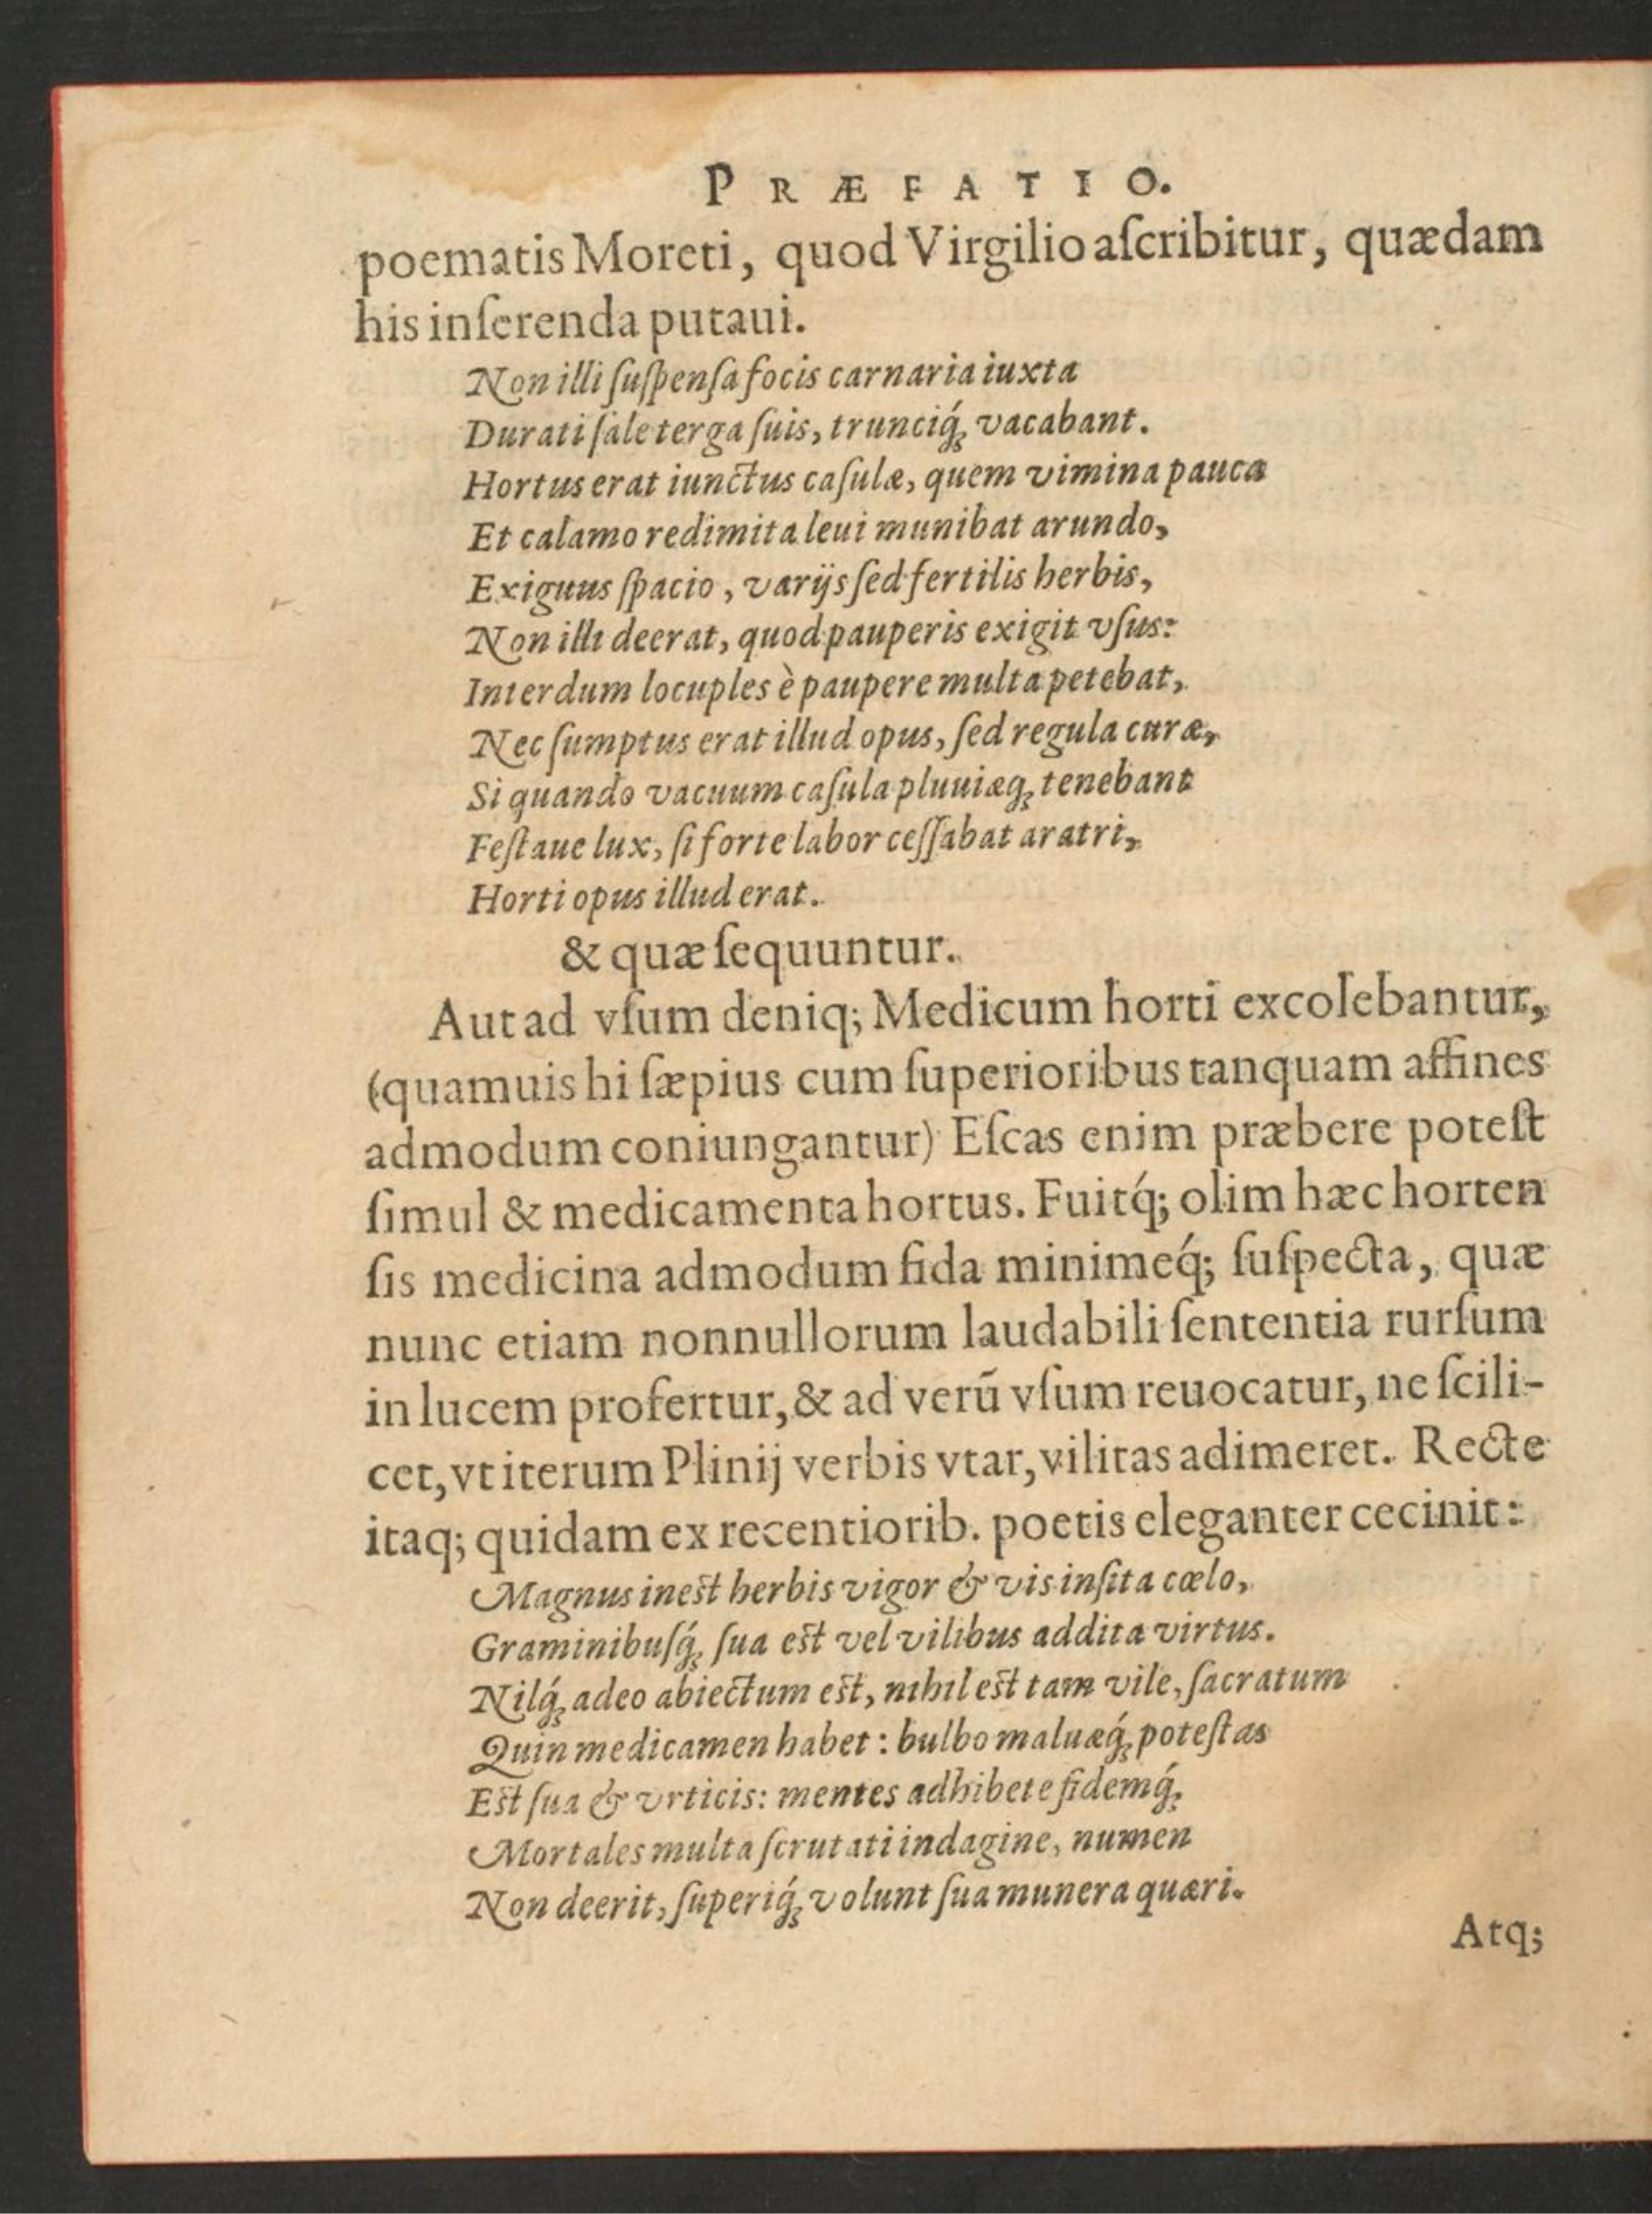 PRÆFATIO.
poematis Moreti, quod Virgilio aſcribitur, quædam
his inſerenda putaui.
Non illi ſuſpenſa focis carnaria iuxta
Durati ſale terga ſuis, trunciq́ꝫ vacabant.
Hortus erat iunctus caſulæ, quem vimina pauca
Et calamo redimita leui munibat arundo,
Exiguus ſpacio, varijs ſed fertilis herbis,
Non illi deerat, quod pauperis exigit vſus:
Interdum locuples è paupere multa petebat,
Nec ſumptus erat illud opus, ſed regula curæ,
Si quando vacuum caſula pluuiæqꝫ tenebant
Feſtaue lux, ſi forte labor ceſſabat aratri,
Horti opus illud erat.
& quæ ſequuntur.
Aut ad vſum deniq; Medicum horti excolebantur,
(quamuis hi ſæpius cum ſuperioribus tanquam affines
admodum coniungantur) Eſcas enim præbere poteſt
ſimul & medicamenta hortus. Fuitq́; olim hæc horten
ſis medicina admodum fida minimeq́; ſuſpecta, quæ
nunc etiam nonnullorum laudabili ſententia rurſum
in lucem profertur, & ad verū vſum reuocatur, ne ſcili-
cet, vt iterum Plinij verbis vtar, vilitas adimeret. Recte
itaq; quidam ex recentiorib. poetis eleganter cecinit:
Magnus ineſt herbis vigor & vis inſita cœlo,
Graminibuſq́ꝫ ſua eſt vel vilibus addita virtus.
Nilq́ꝫ adeo abiectum eſt, nihil eſt tam vile, ſacratum
Quin medicamen habet: bulbo maluæq́ꝫ poteſtas
Eſt ſua & vrticis: mentes adhibete fidemq́ꝫ
Mortales multa ſcrutati indagine, numen
Non deerit, ſuperiq́ꝫ volunt ſua munera quæri.
Atq;